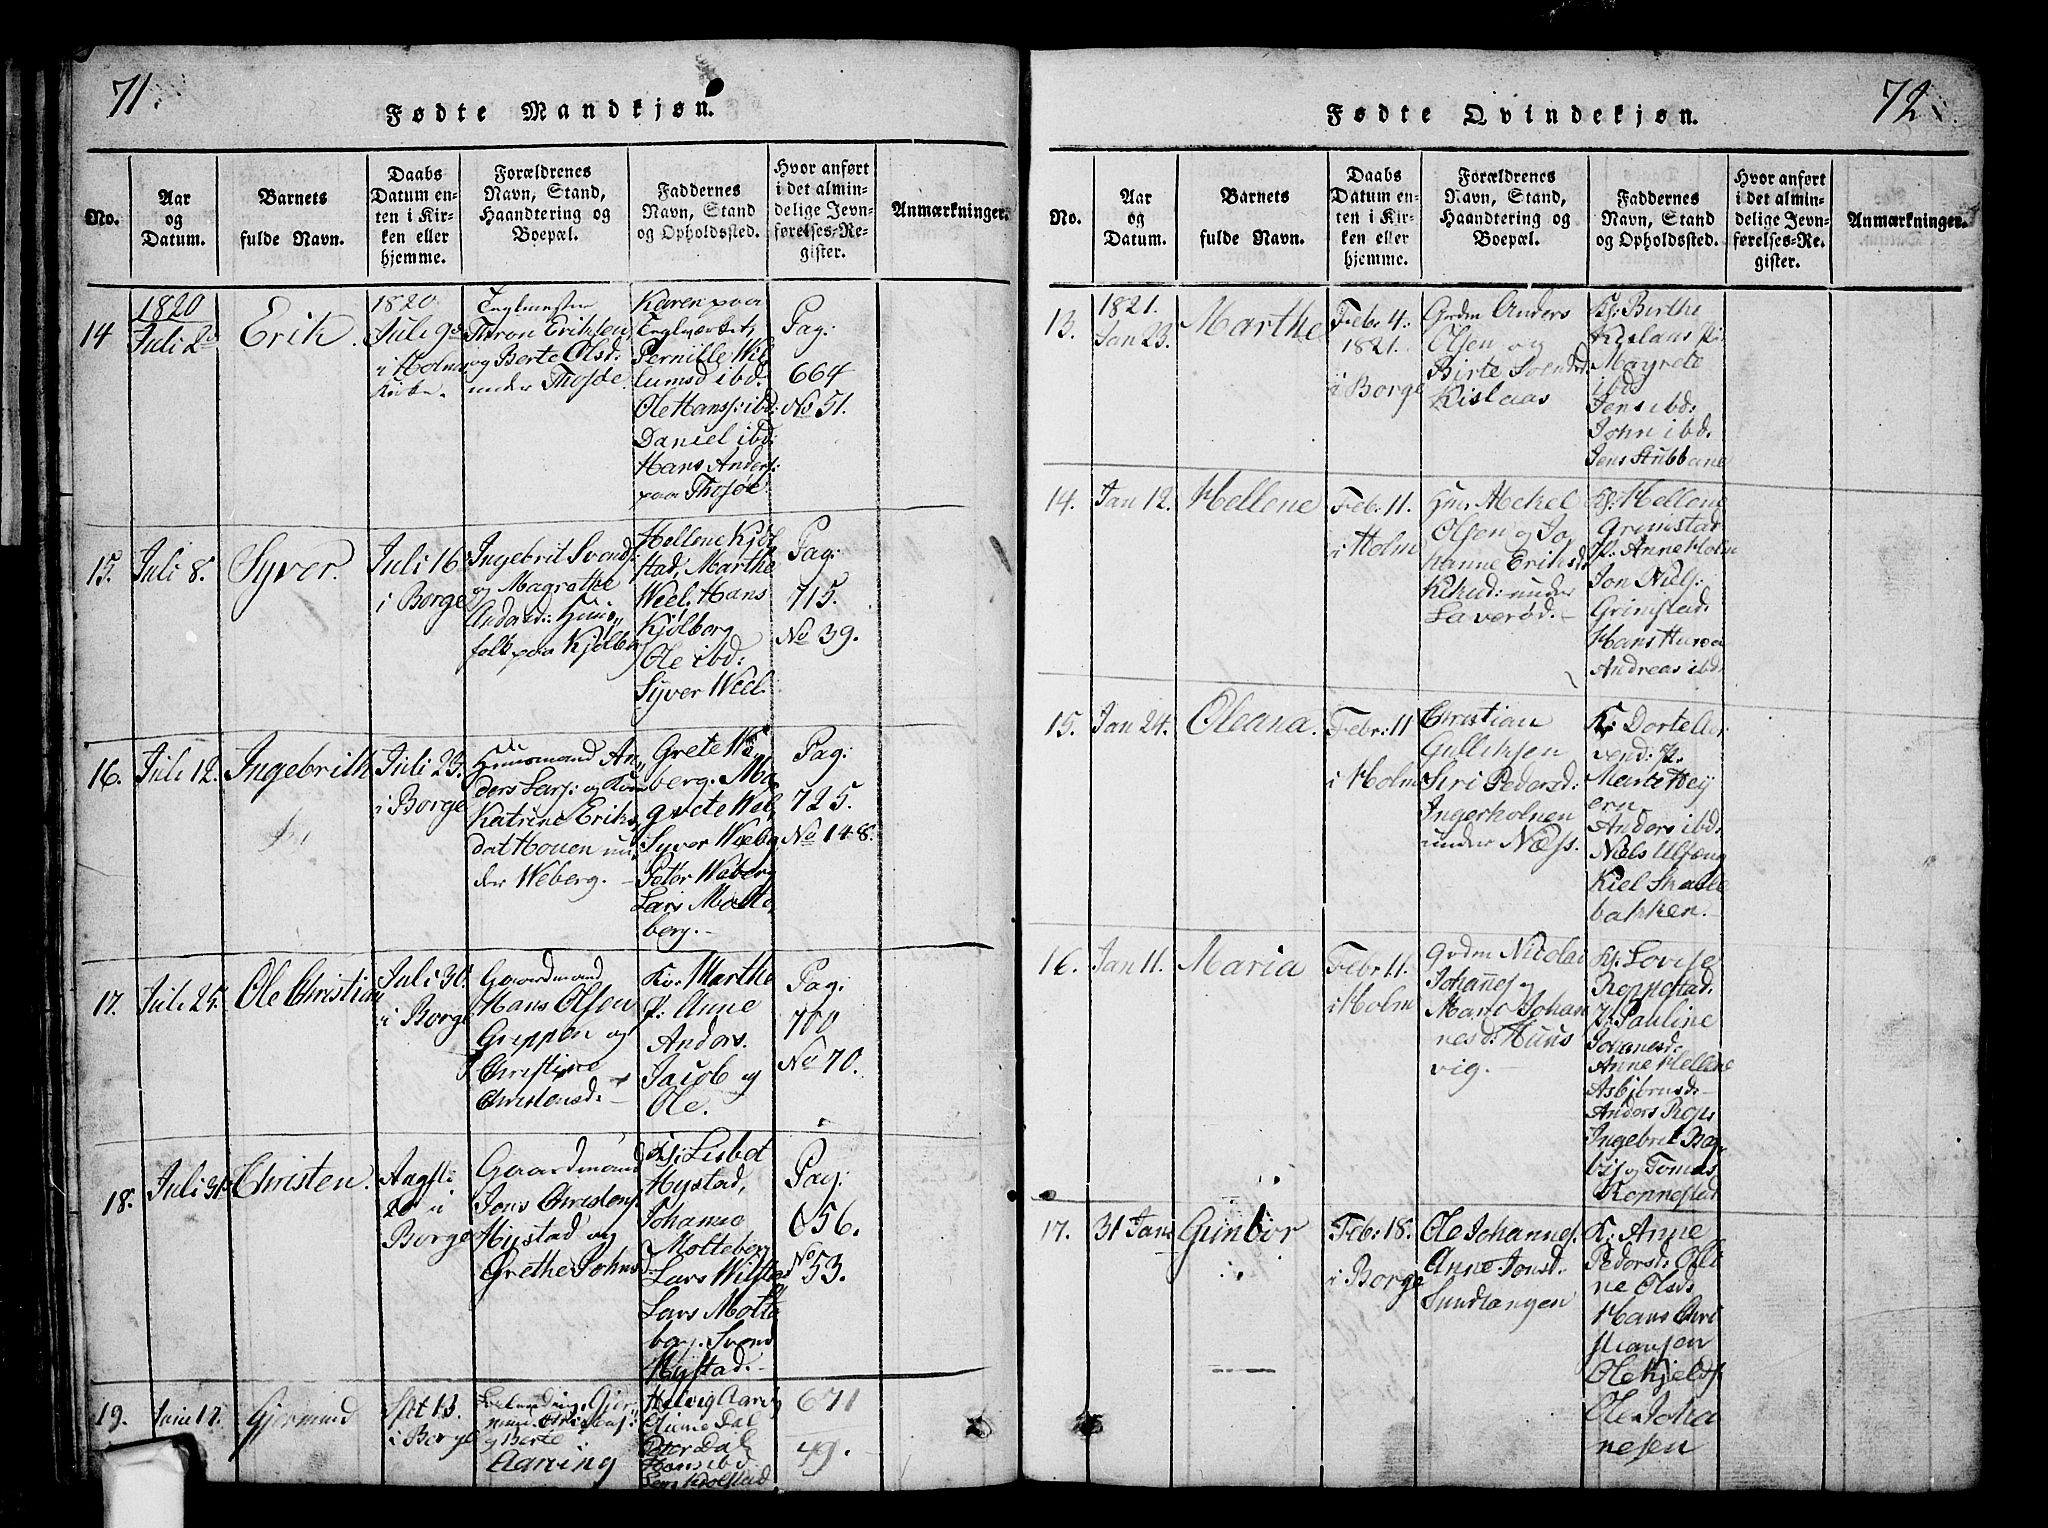 71.
Fødte Mandkjøn.
No.
Aar
og
Datum.
Barnets
fulde Navn.
Daabs
Datum en-
ten i Kir-
ken eller
hjemme.
Forældrenes
Navn, Stand,
Haandtering og
Boepæl.
Faddernes
Navn, Stand
og Opholdssted.
Hvor anført
i det almin-
delige Jevn-
førelses-Re-
gister.
Anmærkninger.
14
1820
Juli 2
Erik.
1820
Juli 9
i Holms
Kirke.
Eriksen
og Berte Olsd:
under Thosøe.
Karen paa
Teglværket,
Pernille Wil
lumsd ibd.
Ole Hanss: ibd:
Daniel ibd:
Hans Anders:
paa Thosøe
Pag:
664
No 51.
15.
Juli 8.
Syver.
Juli 16
i Borge
Ingebrit Svends:
og Magrethe
Andersd: Huus
folk paa Kjølberg
Hellene Kjøl
stad, Marthe
Weel. Hans
Kjølberg
Ole ibd:
Syver Weel.
Pag:
715.
No 39.
16.
Juli 12.
Ingebrith
Juli 23.
i Borge
Huusmand An
ders Lars: og Kone
Katrine Eriks
dat Houen un
der Weberg.
Grete We
berg. Ma
grete Web,
Syver Weberg
Peter Weberg
Lars Molte
berg.
Pag:
725.
No 148.
17.
Juli 25.
Ole Christian
Juli 30.
i Borge
Gaardmand
Hans Olsen
Greppen og
Christine
Christensd.
Ko: Marthe
P: Anne
Anders.
Jacob og
Ole.
Pag:
700
No 70.
18.
Juli 31
Christen.
Augsti
20 i
Borge
Gaardmand
Jens Christens:
Hystad og
Grethe Johns
Lisbet
Hystad,
Johanne
Molteberg
Lars Wilstad
Lars Molte
berg. Svend
Hystad.
Pag:
656.
No 53.
19.
Juni 17.
Gjermund
Spt 13.
i Borge
og Berte
Aarving
Helvig Aarv
Dal
Peter Dal
Hans ibd
671
49.
72
Fødte Qvindekjøn.
No.
Aar
og
Datum.
Barnets
fulde Navn.
Daabs
Datum en-
ten i Kir-
ken eller
hjemme.
Forældrenes
Navn, Stand,
Haandtering og
Boepæl.
Faddernes
Navn, Stand
og Opholdssted.
Hvor anført
i det almin-
delige Jevn-
førelses-Re-
gister.
Anmærkninger.
13.
1821.
Jan 23.
Marthe
Feb: 4:
1821.
i Borge
Grdm Anders
Olsen og
Birte Svends
Kislaas
Kj: Birthe
Kislaas P:
Magrete
ibd
Jens ibd:
John ibd.
Jens Stubbane
14.
Jan 12.
Hellene
Feb: 11.
i Holm
Hm. Mekel
Olsen og Jo
hanne Eriksd:
under
Laverød.
Kj: Hellene
Grimstad
P: Anne Holm
Jon Niels:
Grimstad.
Hans
Andreas ibd.
15.
Jan 24.
Oleana.
Febr: 11
i Holm
Christian
Gulliksen
Siri Pedersd:
Ingerholmen
under Næss.
K: Dorte
vend: P.
Marte Høy
ern
Anders ibd.
Niels Ulfeng
Kiel Skaale
bakken.
16.
Jan 11.
Maria
Febr: 11.
i Holm
Grdm Nicolai
Johannes og
Maria Johan
nesd: Huus
vig.
Kj. Lovise
Roppestad.
P: Pauline
Johanesd:
Anne Hellene
Asbjørnsd.
Anders Rops
Ingebrit
og Tomas
Roppestad
17.
31 Jan:
Gunbor
Feb: 18.
i Borge
Ole Johannes.
Anne Jonsd.
Sundlangen
K: Anne
Pedersd: Oli
ne Olsd.
Hans Chri
stiansen
Ole Kjelds
Ole Joha
nesen